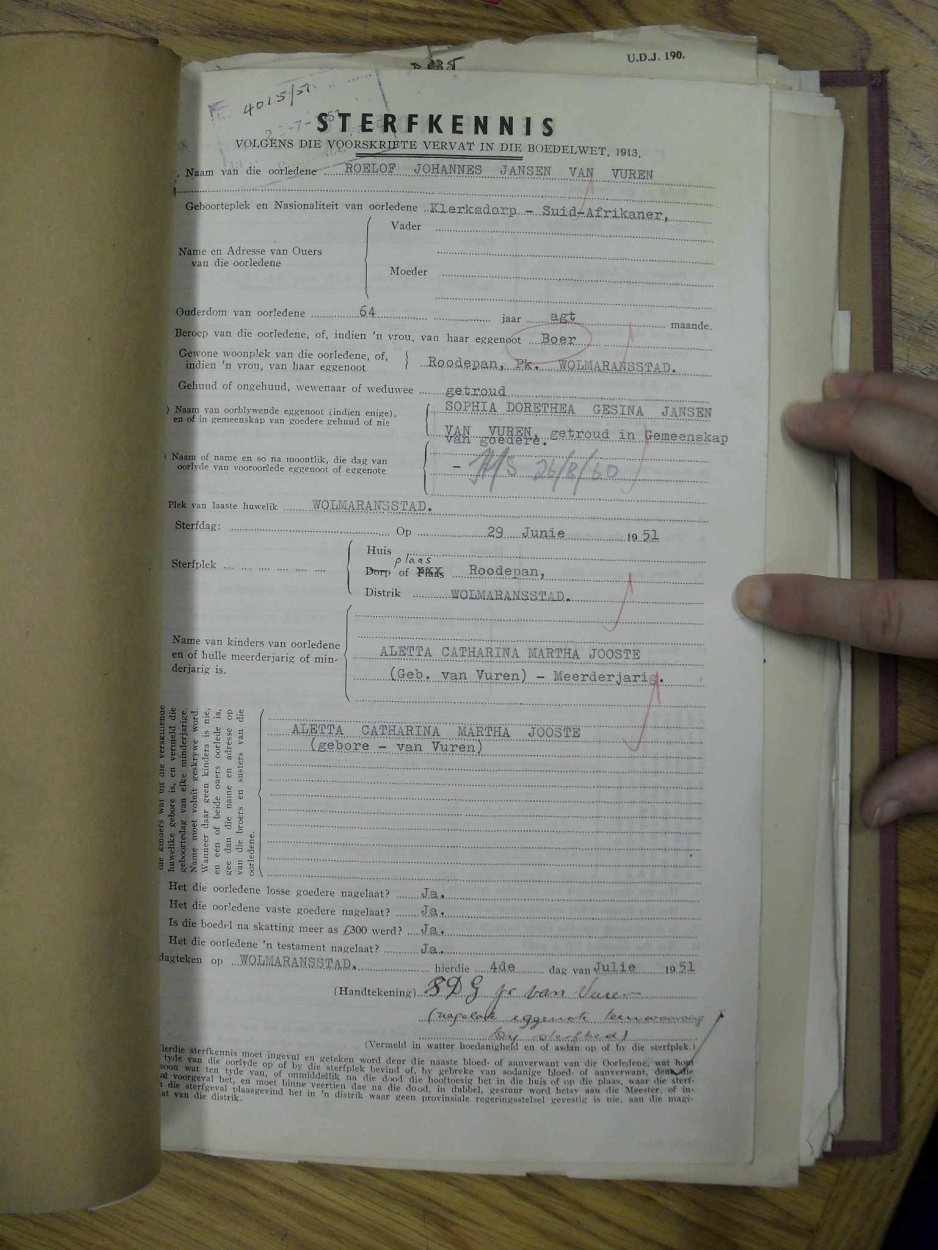 U.D.J. 190.
4015/51
STERFKENNIS
VOLGENS DIE VOORSKRIFTE VERVAT IN DIE BOEDELWET, 1913.
Naam van die oorledene ROELOF JOHANNES JANSEN VAN VUREN
Geboorteplek en Nasionaliteit van oorledene Klerkadorp - Suid-Afrikaner,
Name en Adresse van Ouers van die oorledene
Vader
Moeder
Ouderdom van oorledene 64 jaar agt maande.
Beroep van die oorledene, of, indien 'n vrou, van haar eggenoot Boer
Gewone woonplek van die oorledene, of, indien 'n vrou, van haar eggenoot } Roodepan, Pk. WOLMARANSSTAD.
Gehuud of ongehuud, wewenaar of weduwee getroud
) Naam van oorblywende eggenoot (indien enige), en of in gemeenskap van goedere gehuud of nie
SOPHIA DORETHEA GESINA JANSEN
VAN VUREN, getroud in Gemeenskap
van goedere.
Naam of name en so na moontlik, die dag van oorlyde van vooroorlede eggenoot of eggenote
- 26/8/60
Plek van laaste huwelik WOLMARANSSTAD.
Sterfdag: Op 29 Junie 1951
Sterfplek
Huis
plaas
Dorp of Plaas Roodepan,
Distrik WOLMARANSSTAD.
Name van kinders van oorledene en of hulle meerderjarig of minderjarig is.
ALETTA CATHARINA MARTHA JOOSTE
(Geb. van Vuren) - Meerderjarig.
huwelike gebore is, en vermeld die
geboortedag van elke minderjarige.
Name moet voluit geskrywe word.
Wanneer daar geen kinders is nie,
en een of beide ouers oorlede is,
gee dan die name en adresse op
van die broers en susters van die
oorledene.
ALETTA CATHARINA MARTHA JOOSTE
(gebore - van Vuren)
Het die oorledene losse goedere nagelaat? Ja.
Het die oorledene vaste goedere nagelaat? Ja.
Is die boedel na skatting meer as £300 werd? Ja.
Het die oorledene 'n testament nagelaat? Ja.
dagteken op WOLMARANSSTAD. hierdie 4de dag van Julie 1951
(Handtekening) SDG J v van Vuren
(nagelate eggenote teenwoordig
by sterfbed)
(Vermeld in watter hoedanigheid en of asdan op of by die sterfplek.)
hierdie sterfkennis moet ingevul en geteken word deur die naaste bloed- of aanverwant van die Oorledene, wat hom
tyde van die oorlyde op of by die sterfplek bevind of, by gebreke van sodanige bloed- of aanverwant, deur die
soon wat ten tyde van, of onmiddellik na die dood die hooftoesig het in die huis of op die plaas, waar die sterf-
al voorgeval het, en moet binne veertien dae na die dood, in dubbel, gestuur word hetsy aan die Meester, of in-
die sterfgeval plaasgevind het in 'n distrik waar geen provinsiale regeringsstelsel gevestig is nie, aan die magi-
at van die distrik.